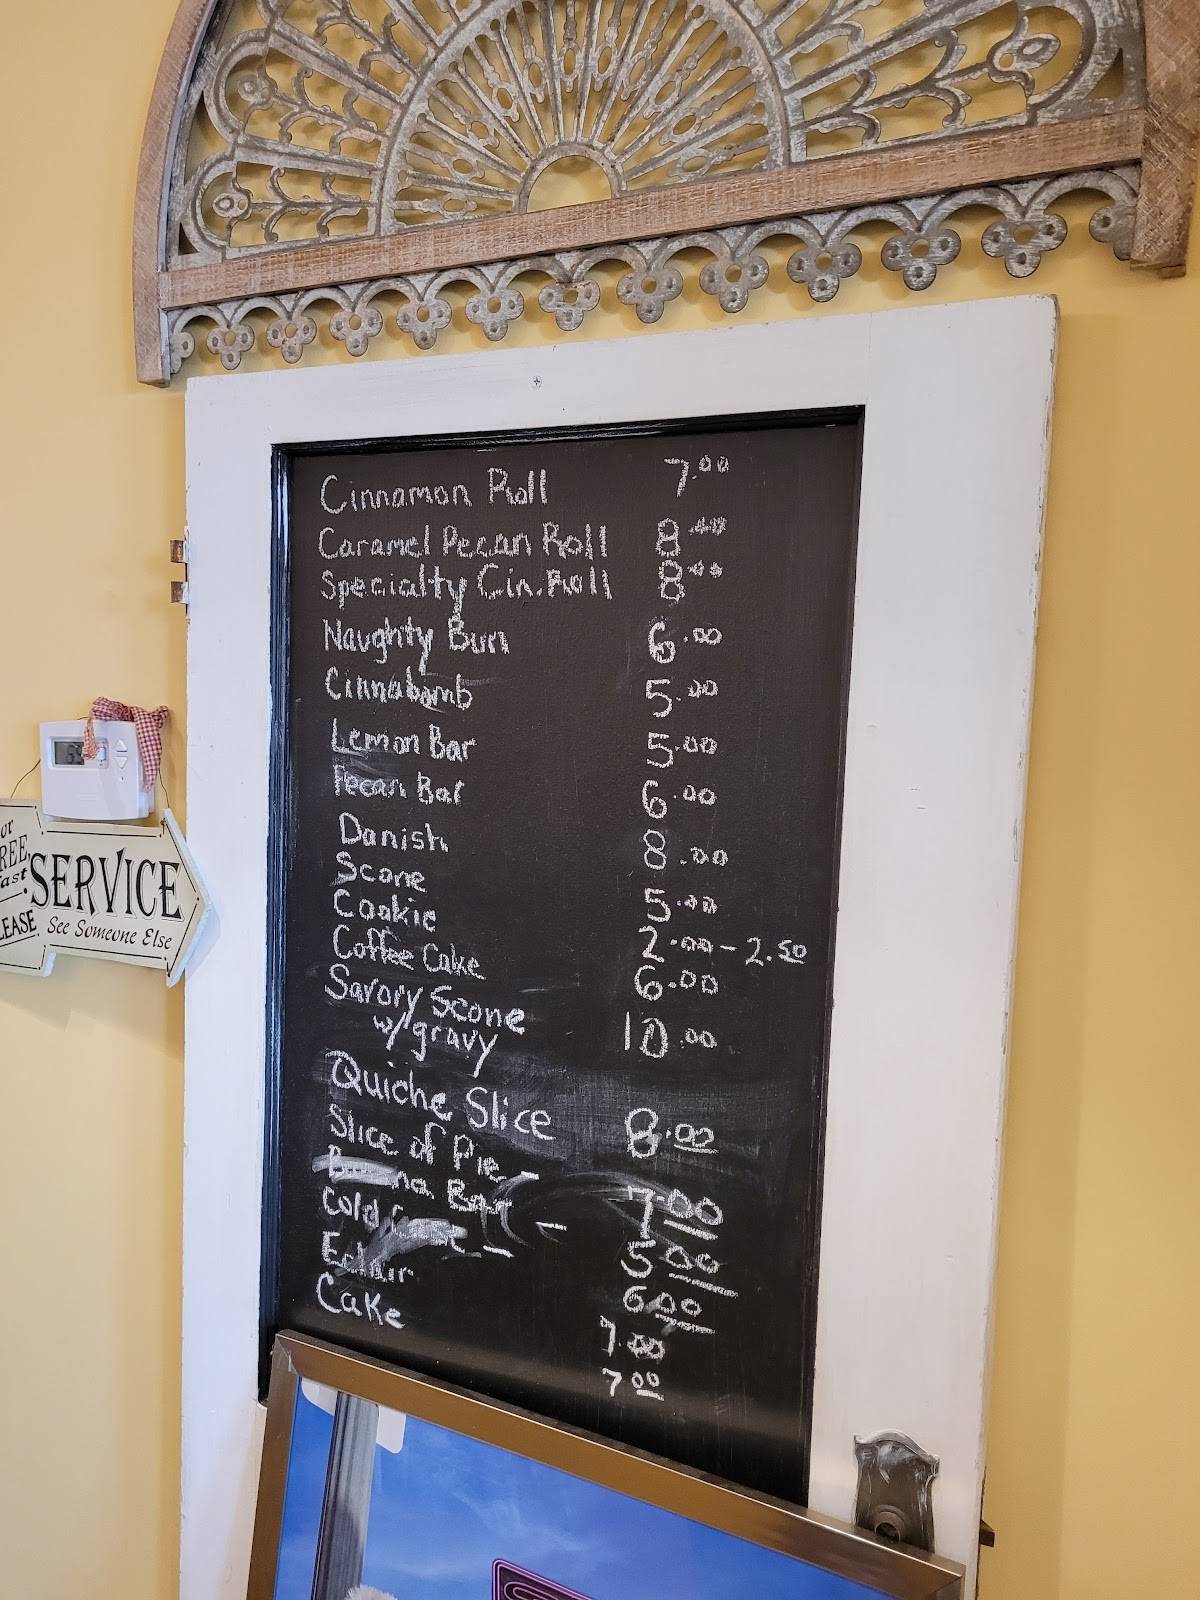 Cinnamon Roll 7.00
Caramel Pecan Roll 8.00
Specialty Cin. Roll 8.00
Naughty Bun 6.00
Cinnabomb 5.00
Lemon Bar 5.00
Pecan Bar 6.00
Danish 8.00
Scone 5.00
Cookie 2.00 - 2.50
Coffee Cake 6.00
Savory Scone
w/gravy 10.00
Quiche Slice 8.00
Slice of Pie - 7.00
Bar - 5.00
Cold - 6.00
Eclair 7.00
Cake 7.00
or
REE
ast
LEASE
SERVICE
See Someone Else